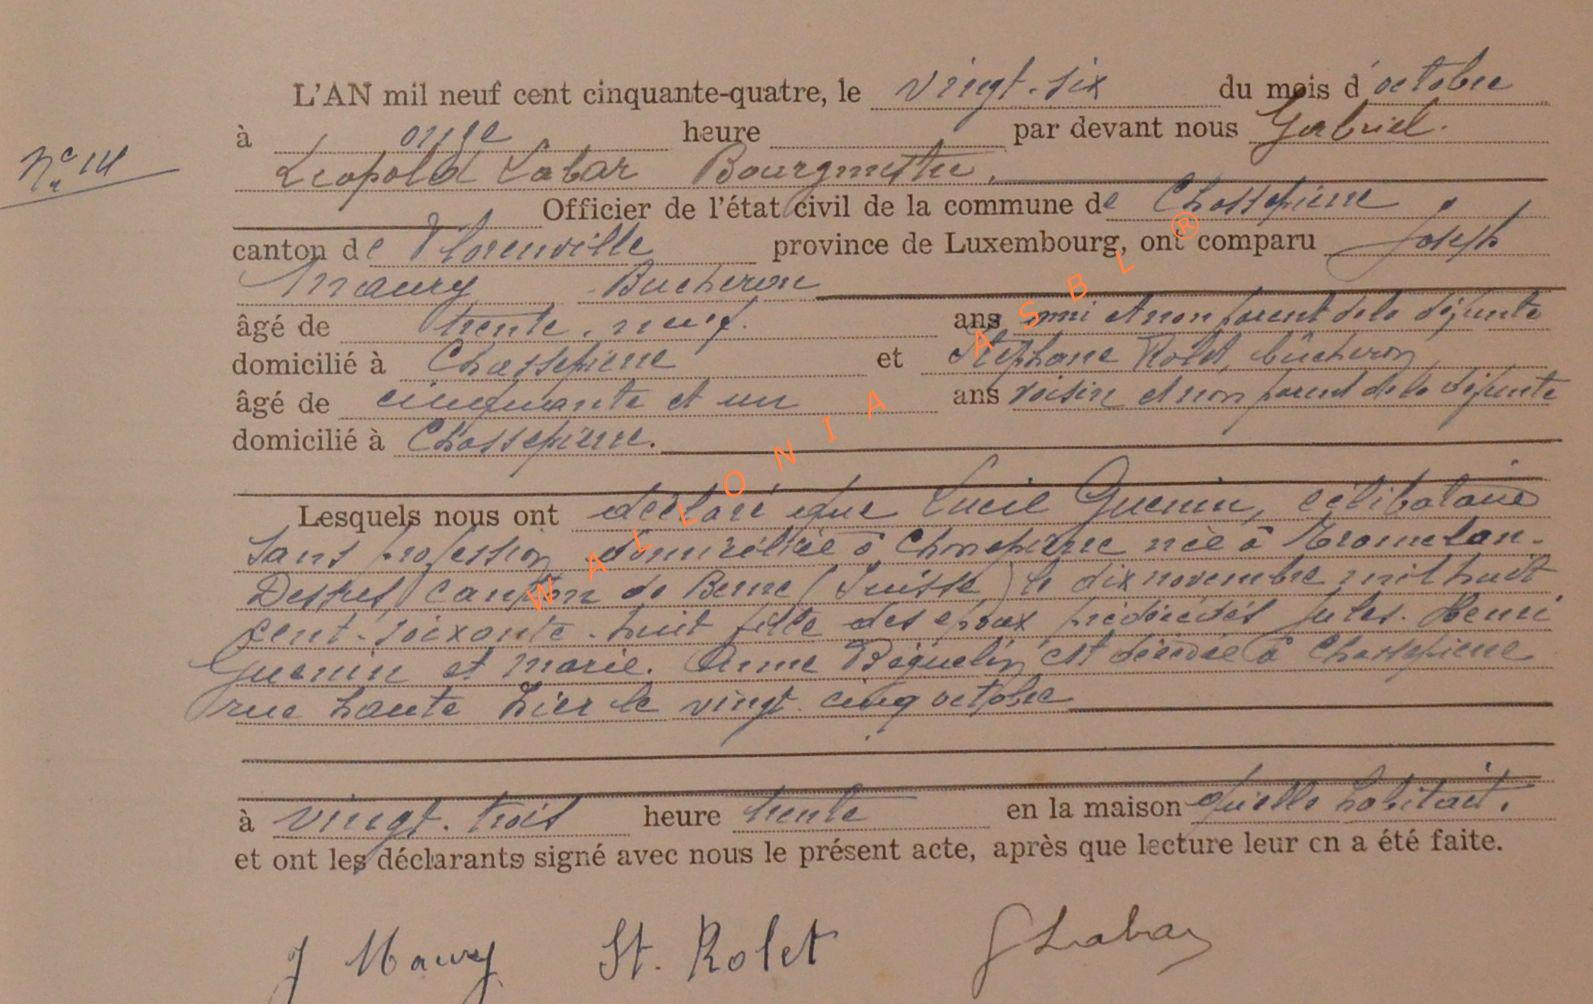 L'AN mil neuf cent cinquante-quatre, le vingt-six du mois d'octobre
à onze heure par devant nous Gabriel.
Nº 14
Léopold Labar Bourgmestre.
Officier de l'état civil de la commune de Chassepierre
canton de Florenville province de Luxembourg, ont comparu Joseph
Maury Bucheron
âgé de trente-neuf. ans ami et non parent de la défunte
domicilié à Chassepierre et Stéphane Rolet, bûcheron
âgé de cinquante et un ans voisin et non parent de la défunte
domicilié à Chassepierre.
Lesquels nous ont déclaré que Lucie Guenin, célibataire
sans profession domiciliée à Chassepierre née à Tramelan-
Dessus, canton de Berne (Suisse) le dix novembre mil huit
cent-soixante-huit fille des époux prédécédés Jules-Henri
Guenin et Marie-Anne Béguelin est décédée à Chassepierre
rue haute hier le vingt-cinq octobre
à vingt-trois heure trente en la maison qu'elle habitait.
et ont les déclarants signé avec nous le présent acte, après que lecture leur en a été faite.
J Maury St. Rolet G Labar
WALLONIA ASBL ®